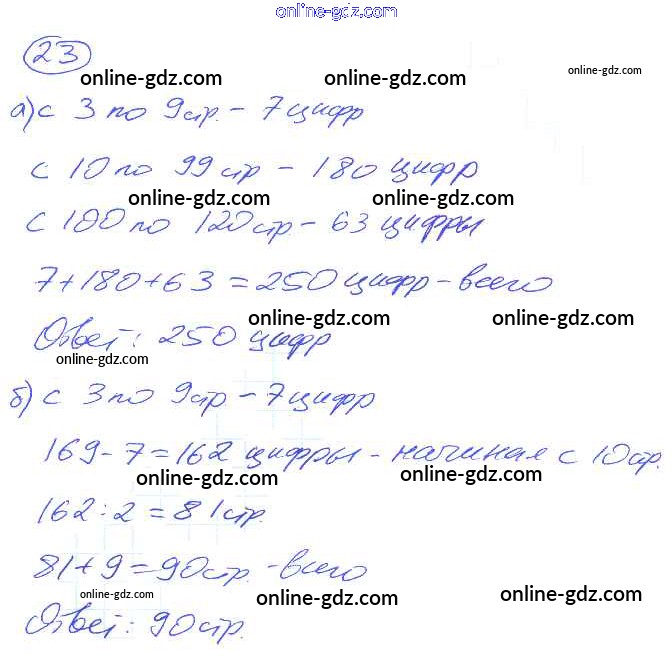 online-gdz.com
23
online-gdz.com online-gdz.com online-gdz.com
а) с 3 по 9 стр. – 7 цифр
с 10 по 99 стр – 180 цифр
online-gdz.com online-gdz.com
с 100 по 120 стр – 63 цифры
7+180+63=250 цифр – всего
online-gdz.com online-gdz.com
Ответ: 250 цифр
online-gdz.com
б) с 3 по 9 стр – 7 цифр
169-7=162 цифры – начиная с 10 стр.
online-gdz.com online-gdz.com
162:2=81 стр.
81+9=90 стр. – всего
online-gdz.com online-gdz.com online-gdz.com
Ответ: 90 стр.